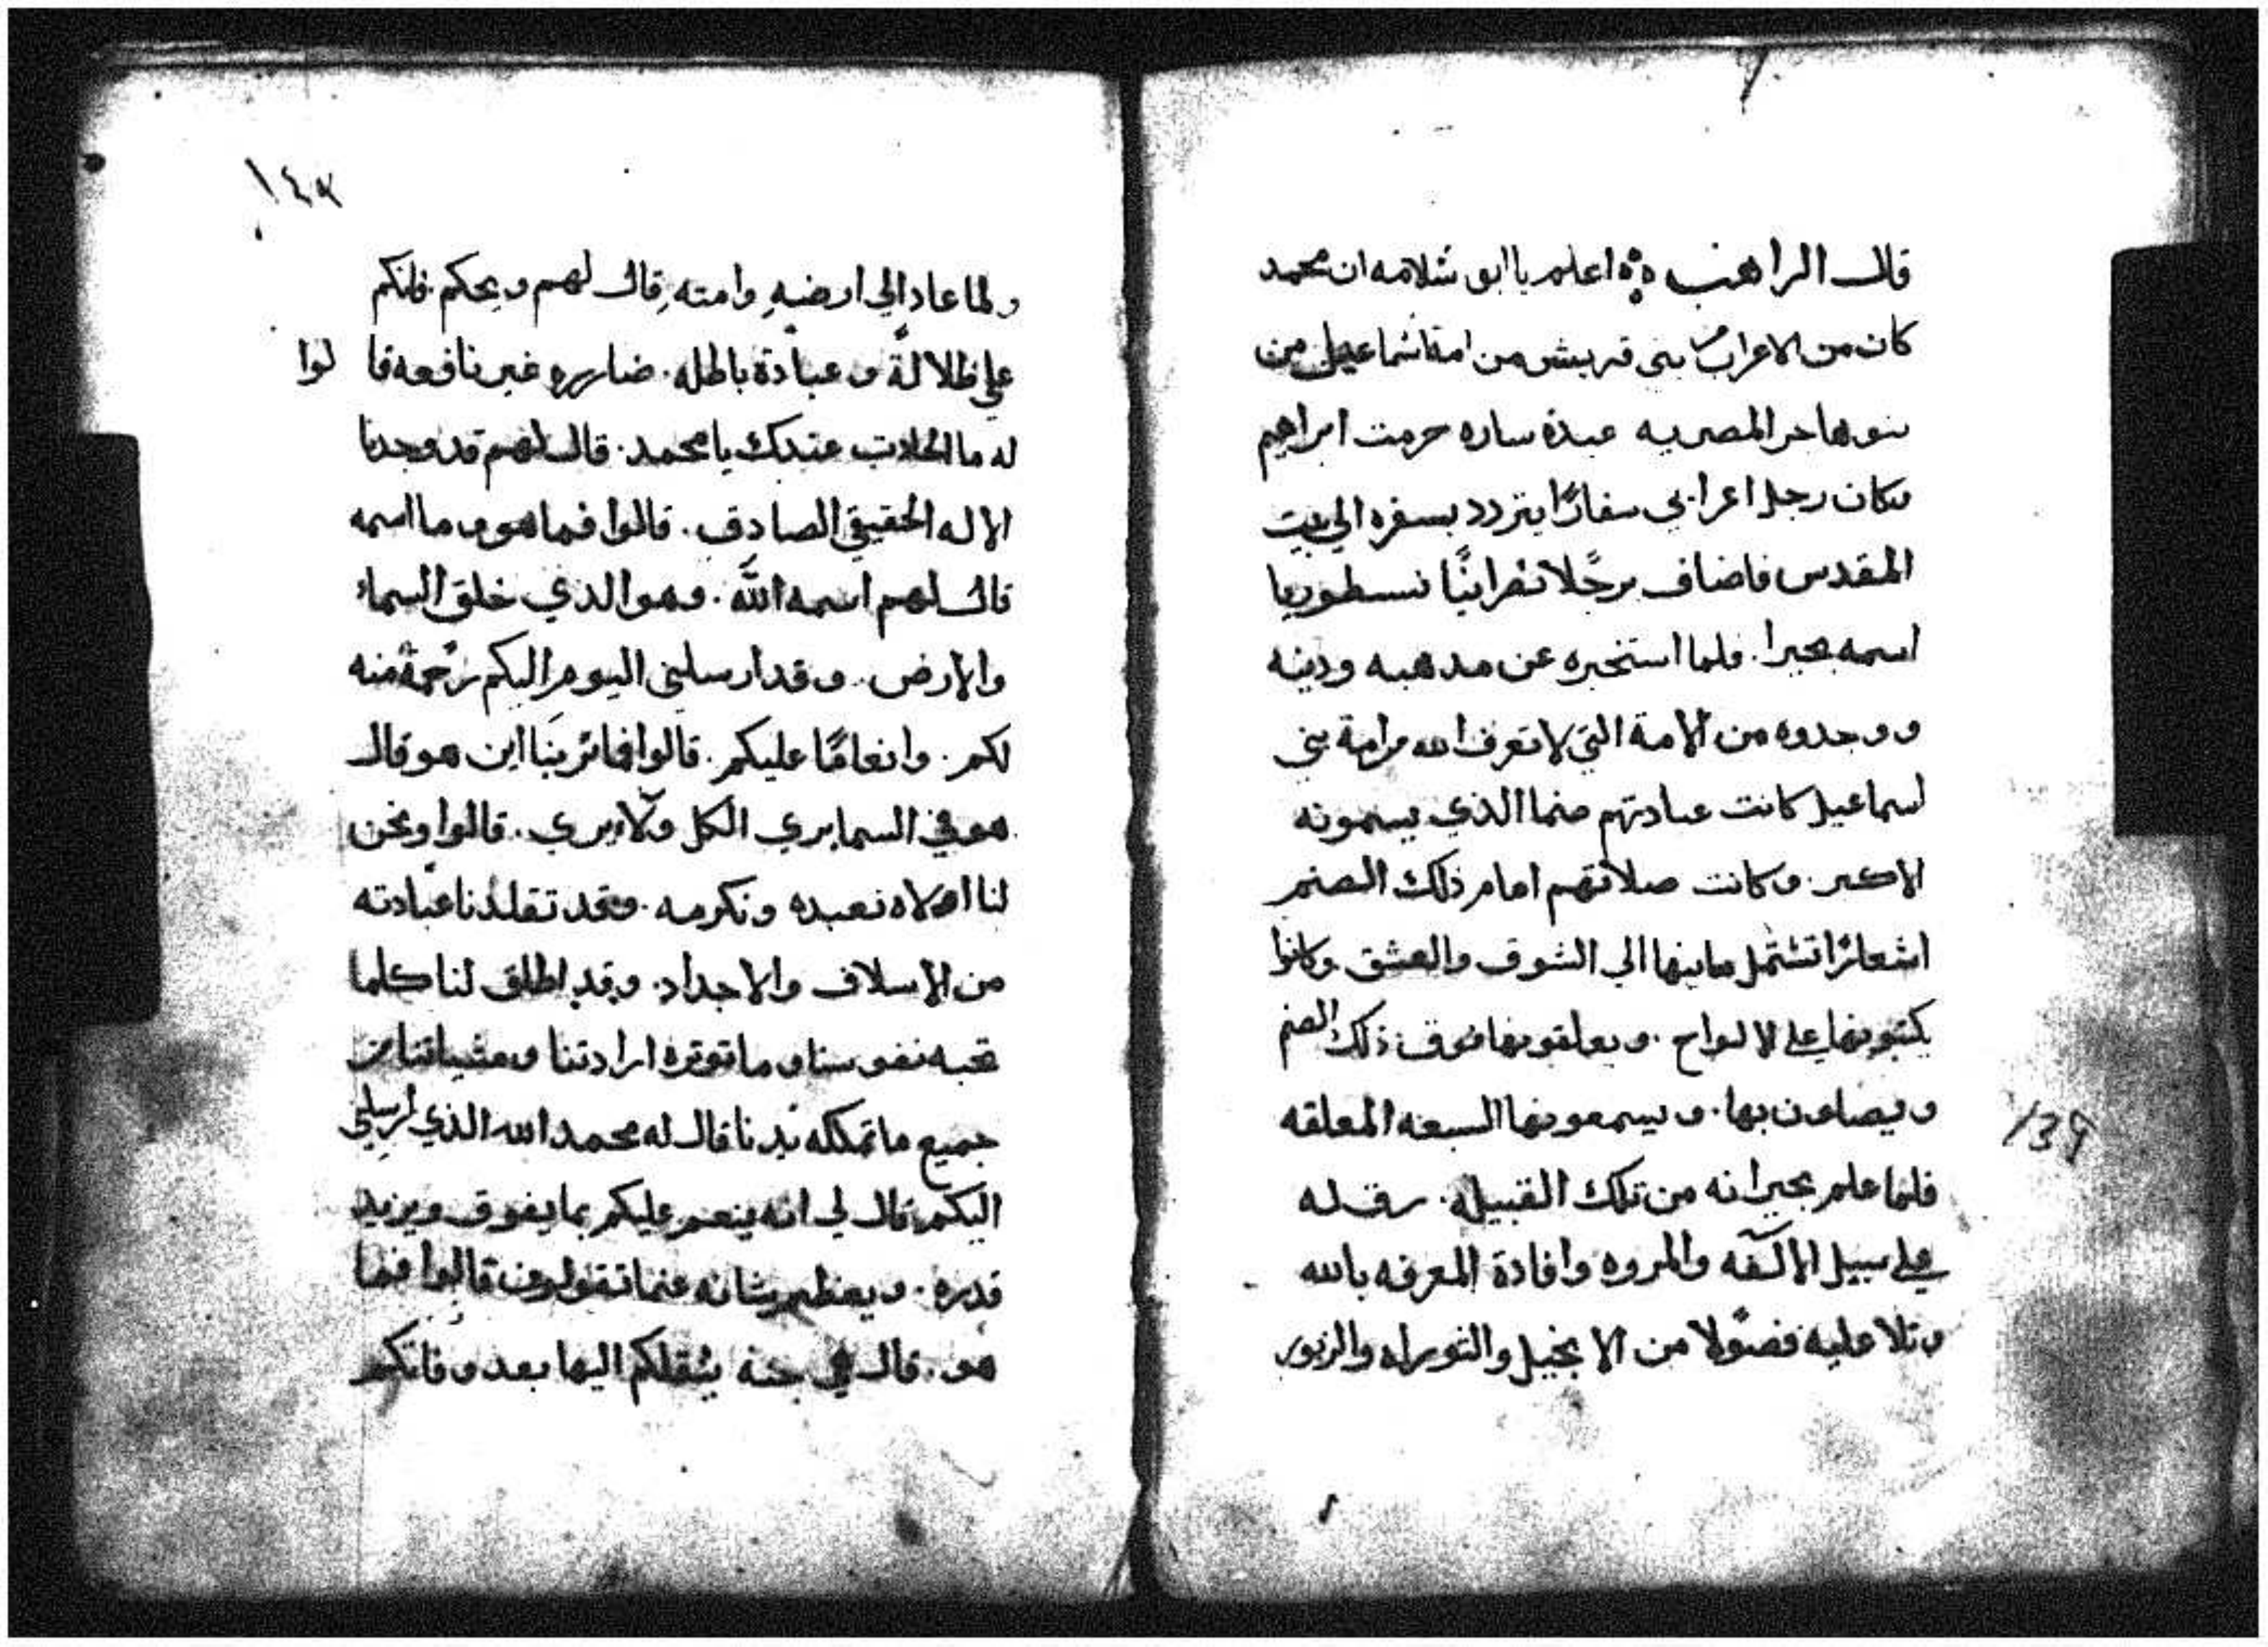 قال الراهب اعلم يا ابو سلامه ان محمد
كان من الاعراب بنى قريش من امة اسماعيل من
بنو هاجر المصريه عبدة ساره حرمت ابراهيم
وكان رجل اعرابي سفارًا يتردد بسفره الي بيت
المقدس فاضاف رجًلا نصرانيًا نسطوريا
اسمه بحيرا. فلما استخبره عن مدهبه ودينه
ووجدوه من الامة التي لا تعرف الله من امة بني
اسماعيل كانت عبادتهم صنما الذي يسمونه
الاكبر. وكانت صلاتهم امام ذلك الصنم
اشعارًا تشتمل معانيها الي الشوق والعشق وكانوا
يكتبونها علي الالواح. ويعلقونها فوق ذلك الصنم
ويصلون بها. ويسمعونها السبعه المعلقه
فلما علم بحيرا انه من تلك القبيله. رق له
علي سبيل الالفه والمروه وافادة المعرفه بالله
وتلا عليه فصولا من الانجيل والتوراه والزبور
139
ولما عاد الي ارضه وامته قال لهم ويحكم. فانكم
علي ظلالة وعبادة باطله. ضارره غير نافعه قا لوا
له ما الحادت عندك يا محمد. قال لهم قد وجدنا
الاله الحقيقي الصادق. قالوا فما هو وما اسمه
قال لهم اسمه الله. وهو الدي خلق السماء
والارض. وقد ارسلني اليوم اليكم رحمة منه
لكم. وانعامًا عليكم. قالوا فما ترينا اين هو قال
هو في السما يري الكل ولا يري. قالوا ونحن
لنا الاه نعبده ونكرمه. وقد تقلدنا عبادته
من الاسلاف والاجداد. وقد اطلق لنا كلما
تحبه نفوسنا وما توتره ارادتنا ومشياتنا من
جميع ما تملكه يدنا قال له محمد الله الذي ارسلني
اليكم قال لي انه ينعم عليكم بما يفوق ويزيد
قدره. ويعظم شانه عنما تقولون قالوا فما
هو. قال في جنه ينقلكم اليها بعد وفاتكم